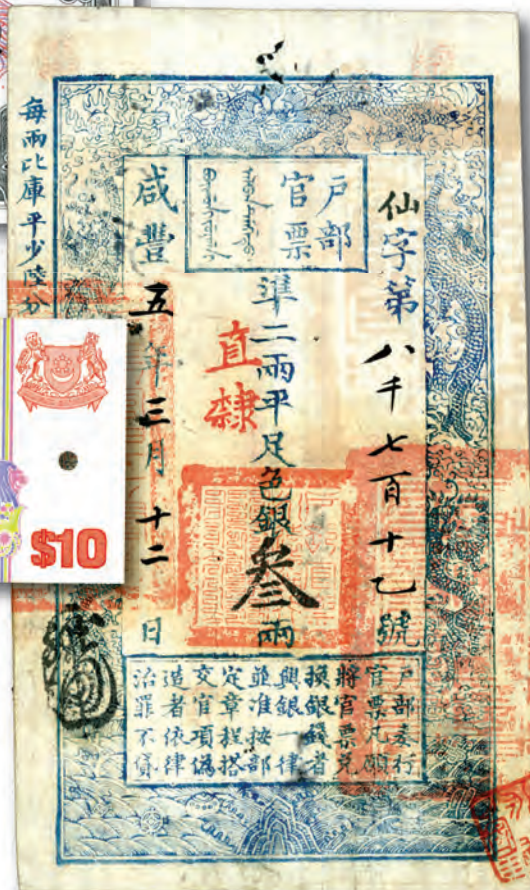 每兩比庫平少陸分
戶部
官票
仙字第八千七百十乙號
準二兩平足色銀叁兩
直隸
咸豐五年三月十二日
戶部奏行
官票凡願
將官票兌
換銀錢者
與銀一律
並准按部
定章程搭
交官項偽
造者依律
治罪不貸
$10